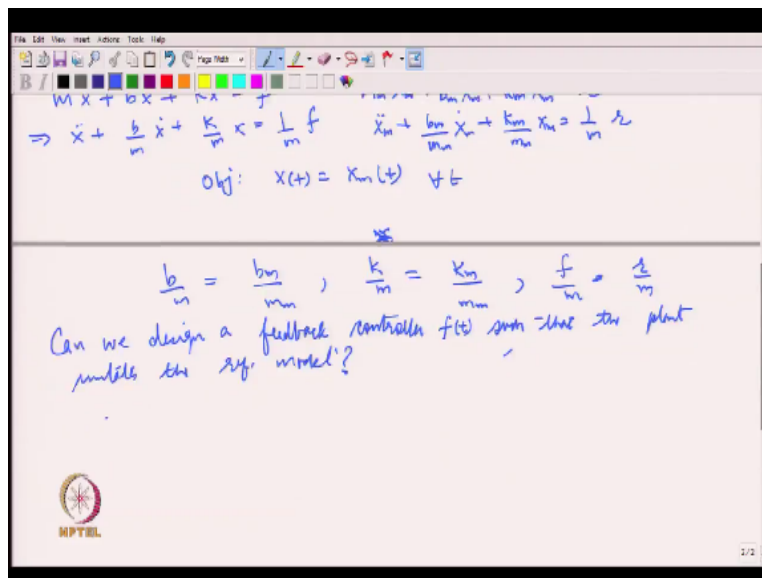 File Edit View Insert Actions Tools Help
Page Width
B I
mẍ + bẋ + kx = f
⇒ ẍ + b/m ẋ + k/m x = 1/m f ẍm + bm/mm ẋm + km/mm xm = 1/m r
Obj: x(t) = xm(t) ∀ t
b/m = bm/mm , k/m = km/mm , f/m = r/m
Can we design a feedback controller f(t) such that the plant
the ref. model?
NPTEL
2/2